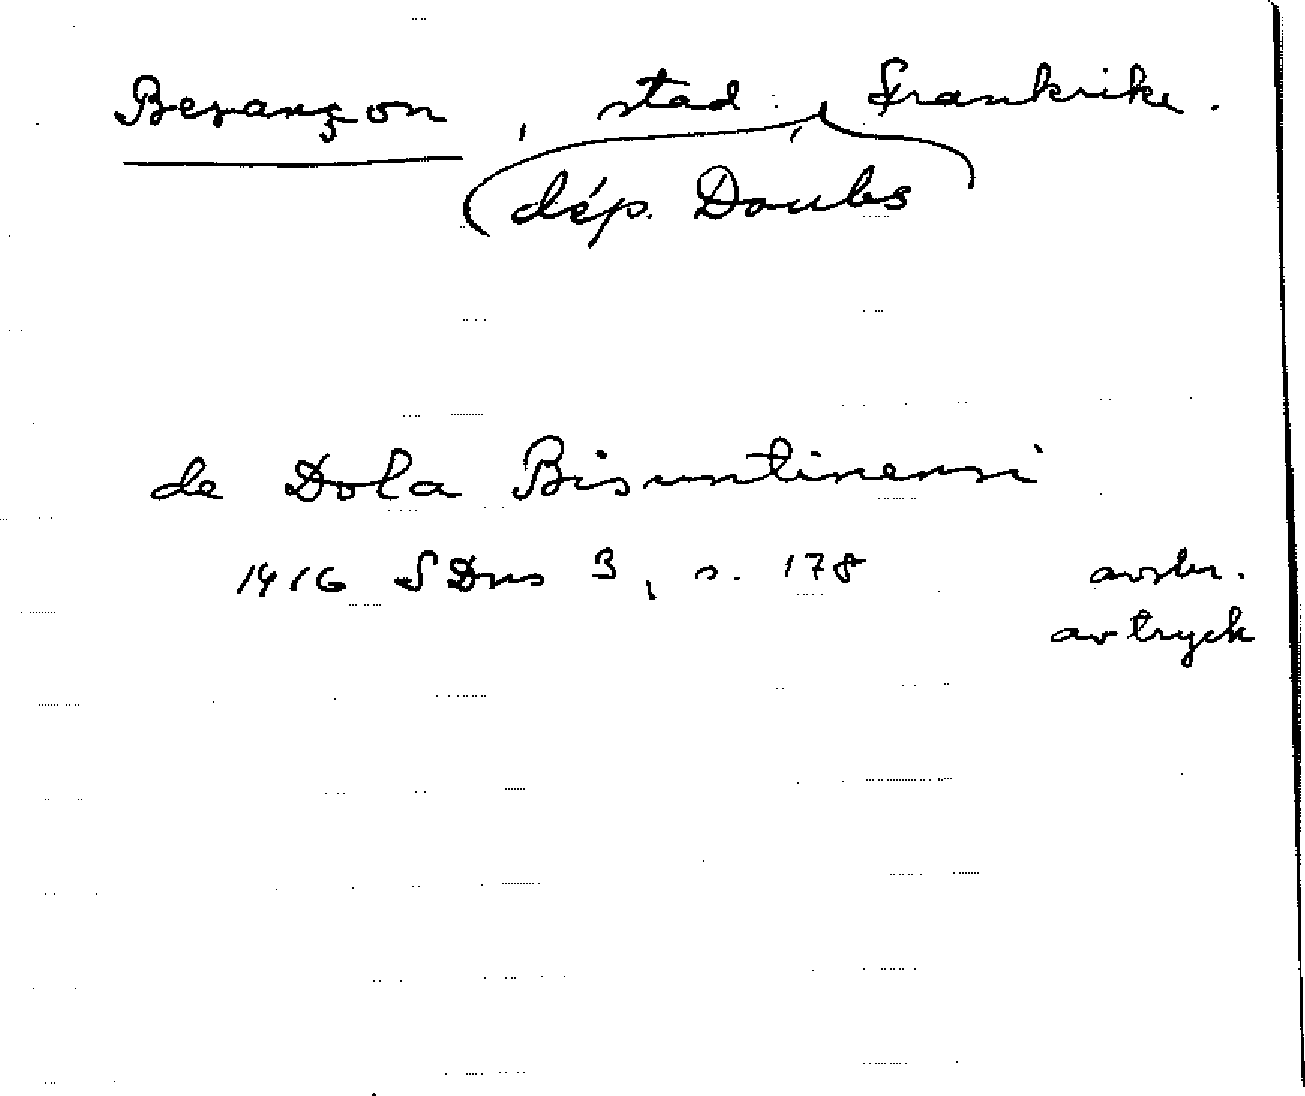 Besançon, stad, Frankrike.
(dép. Doubs
de Dola Bisuntinensi
1416 SDns 3, s. 178 avskr.
av tryck